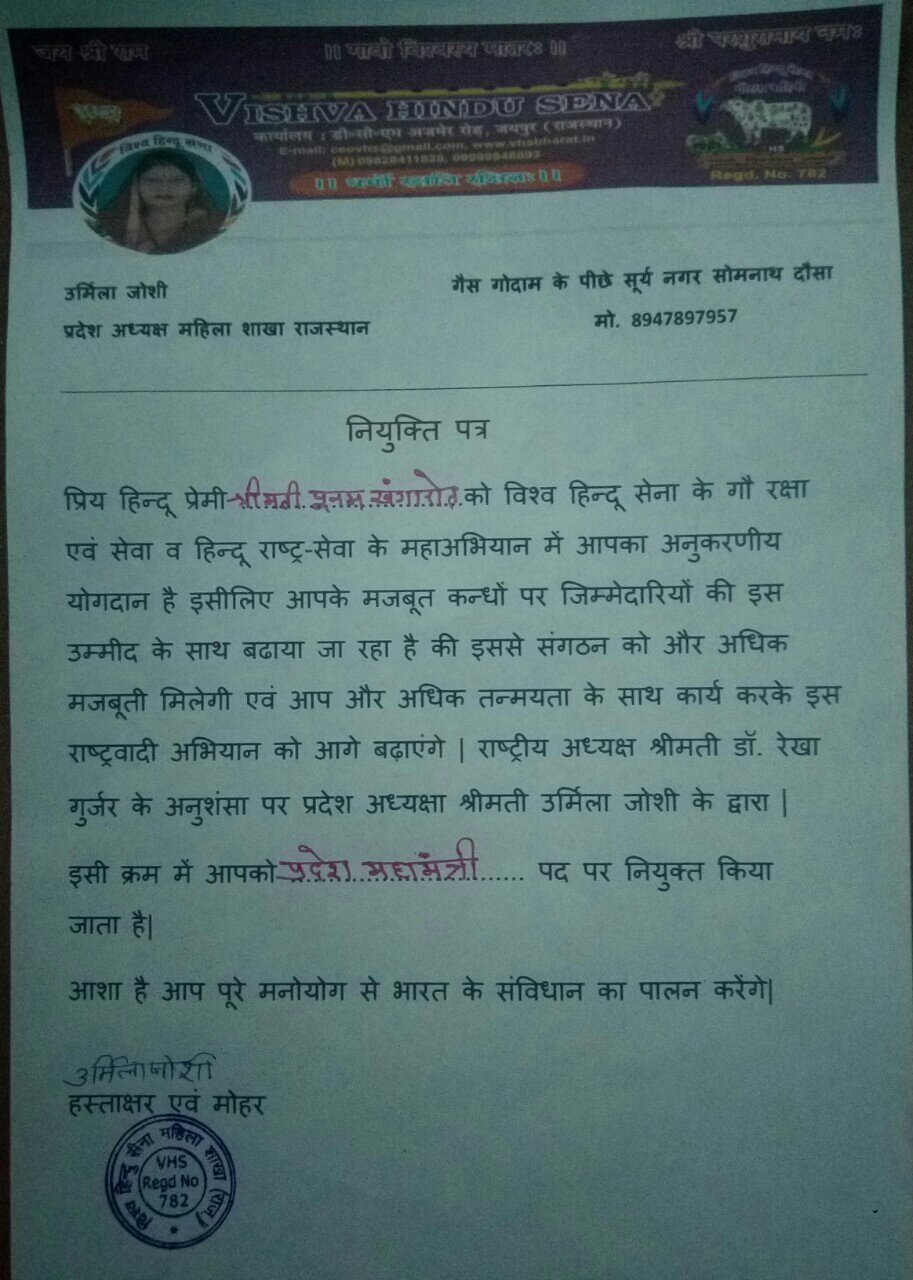 जय श्री राम
|| गावो विश्वस्य मातरः ||
श्री परशुरामाय नमः
VISHVA HINDU SENA
कार्यालय : डी-सी-एम अजमेर रोड़, जयपुर (राजस्थान)
E-mail: ceovhs@gmail.com, www.vhsbharat.in
(M) 09828411828,
Regd. No. 782
विश्व हिन्दू सेना
उर्मिला जोशी
प्रदेश अध्यक्ष महिला शाखा राजस्थान
गैस गोदाम के पीछे सूर्य नगर सोमनाथ दौसा
मो. 8947897957
नियुक्ति पत्र
प्रिय हिन्दू प्रेमी श्रीमती पूनम खंगारोत को विश्व हिन्दू सेना के गौ रक्षा
एवं सेवा व हिन्दू राष्ट्र-सेवा के महाअभियान में आपका अनुकरणीय
योगदान है इसीलिए आपके मजबूत कन्धों पर जिम्मेदारियों की इस
उम्मीद के साथ बढाया जा रहा है की इससे संगठन को और अधिक
मजबूती मिलेगी एवं आप और अधिक तन्मयता के साथ कार्य करके इस
राष्ट्रवादी अभियान को आगे बढ़ाएंगे | राष्ट्रीय अध्यक्ष श्रीमती डॉ. रेखा
गुर्जर के अनुशंसा पर प्रदेश अध्यक्षा श्रीमती उर्मिला जोशी के द्वारा |
इसी क्रम में आपको प्रदेश महामंत्री...... पद पर नियुक्त किया
जाता है|
आशा है आप पूरे मनोयोग से भारत के संविधान का पालन करेंगे|
उर्मिला जोशी
हस्ताक्षर एवं मोहर
विश्व हिन्दु सेना महिला शाखा (राज.)
VHS
Regd No
782